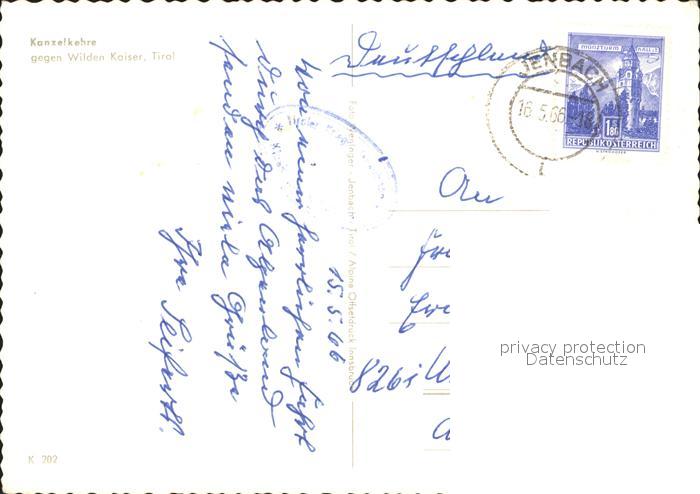 Kanzelkehre
gegen Wilden Kaiser, Tirol
15.5.66
Von einer herrlichen Fahrt
durch das Alpenland
senden viele Grüße
Ihre Seifert.
Deutschland
MÜNZTURM HALL i. T.
1.80
REPUBLIK ÖSTERREICH
JENBACH
16.5.66
Jenbach, Tirol / Alpine Offsetdruck Innsbruck
An
Fr
8261
privacy protection
Datenschutz
K 202